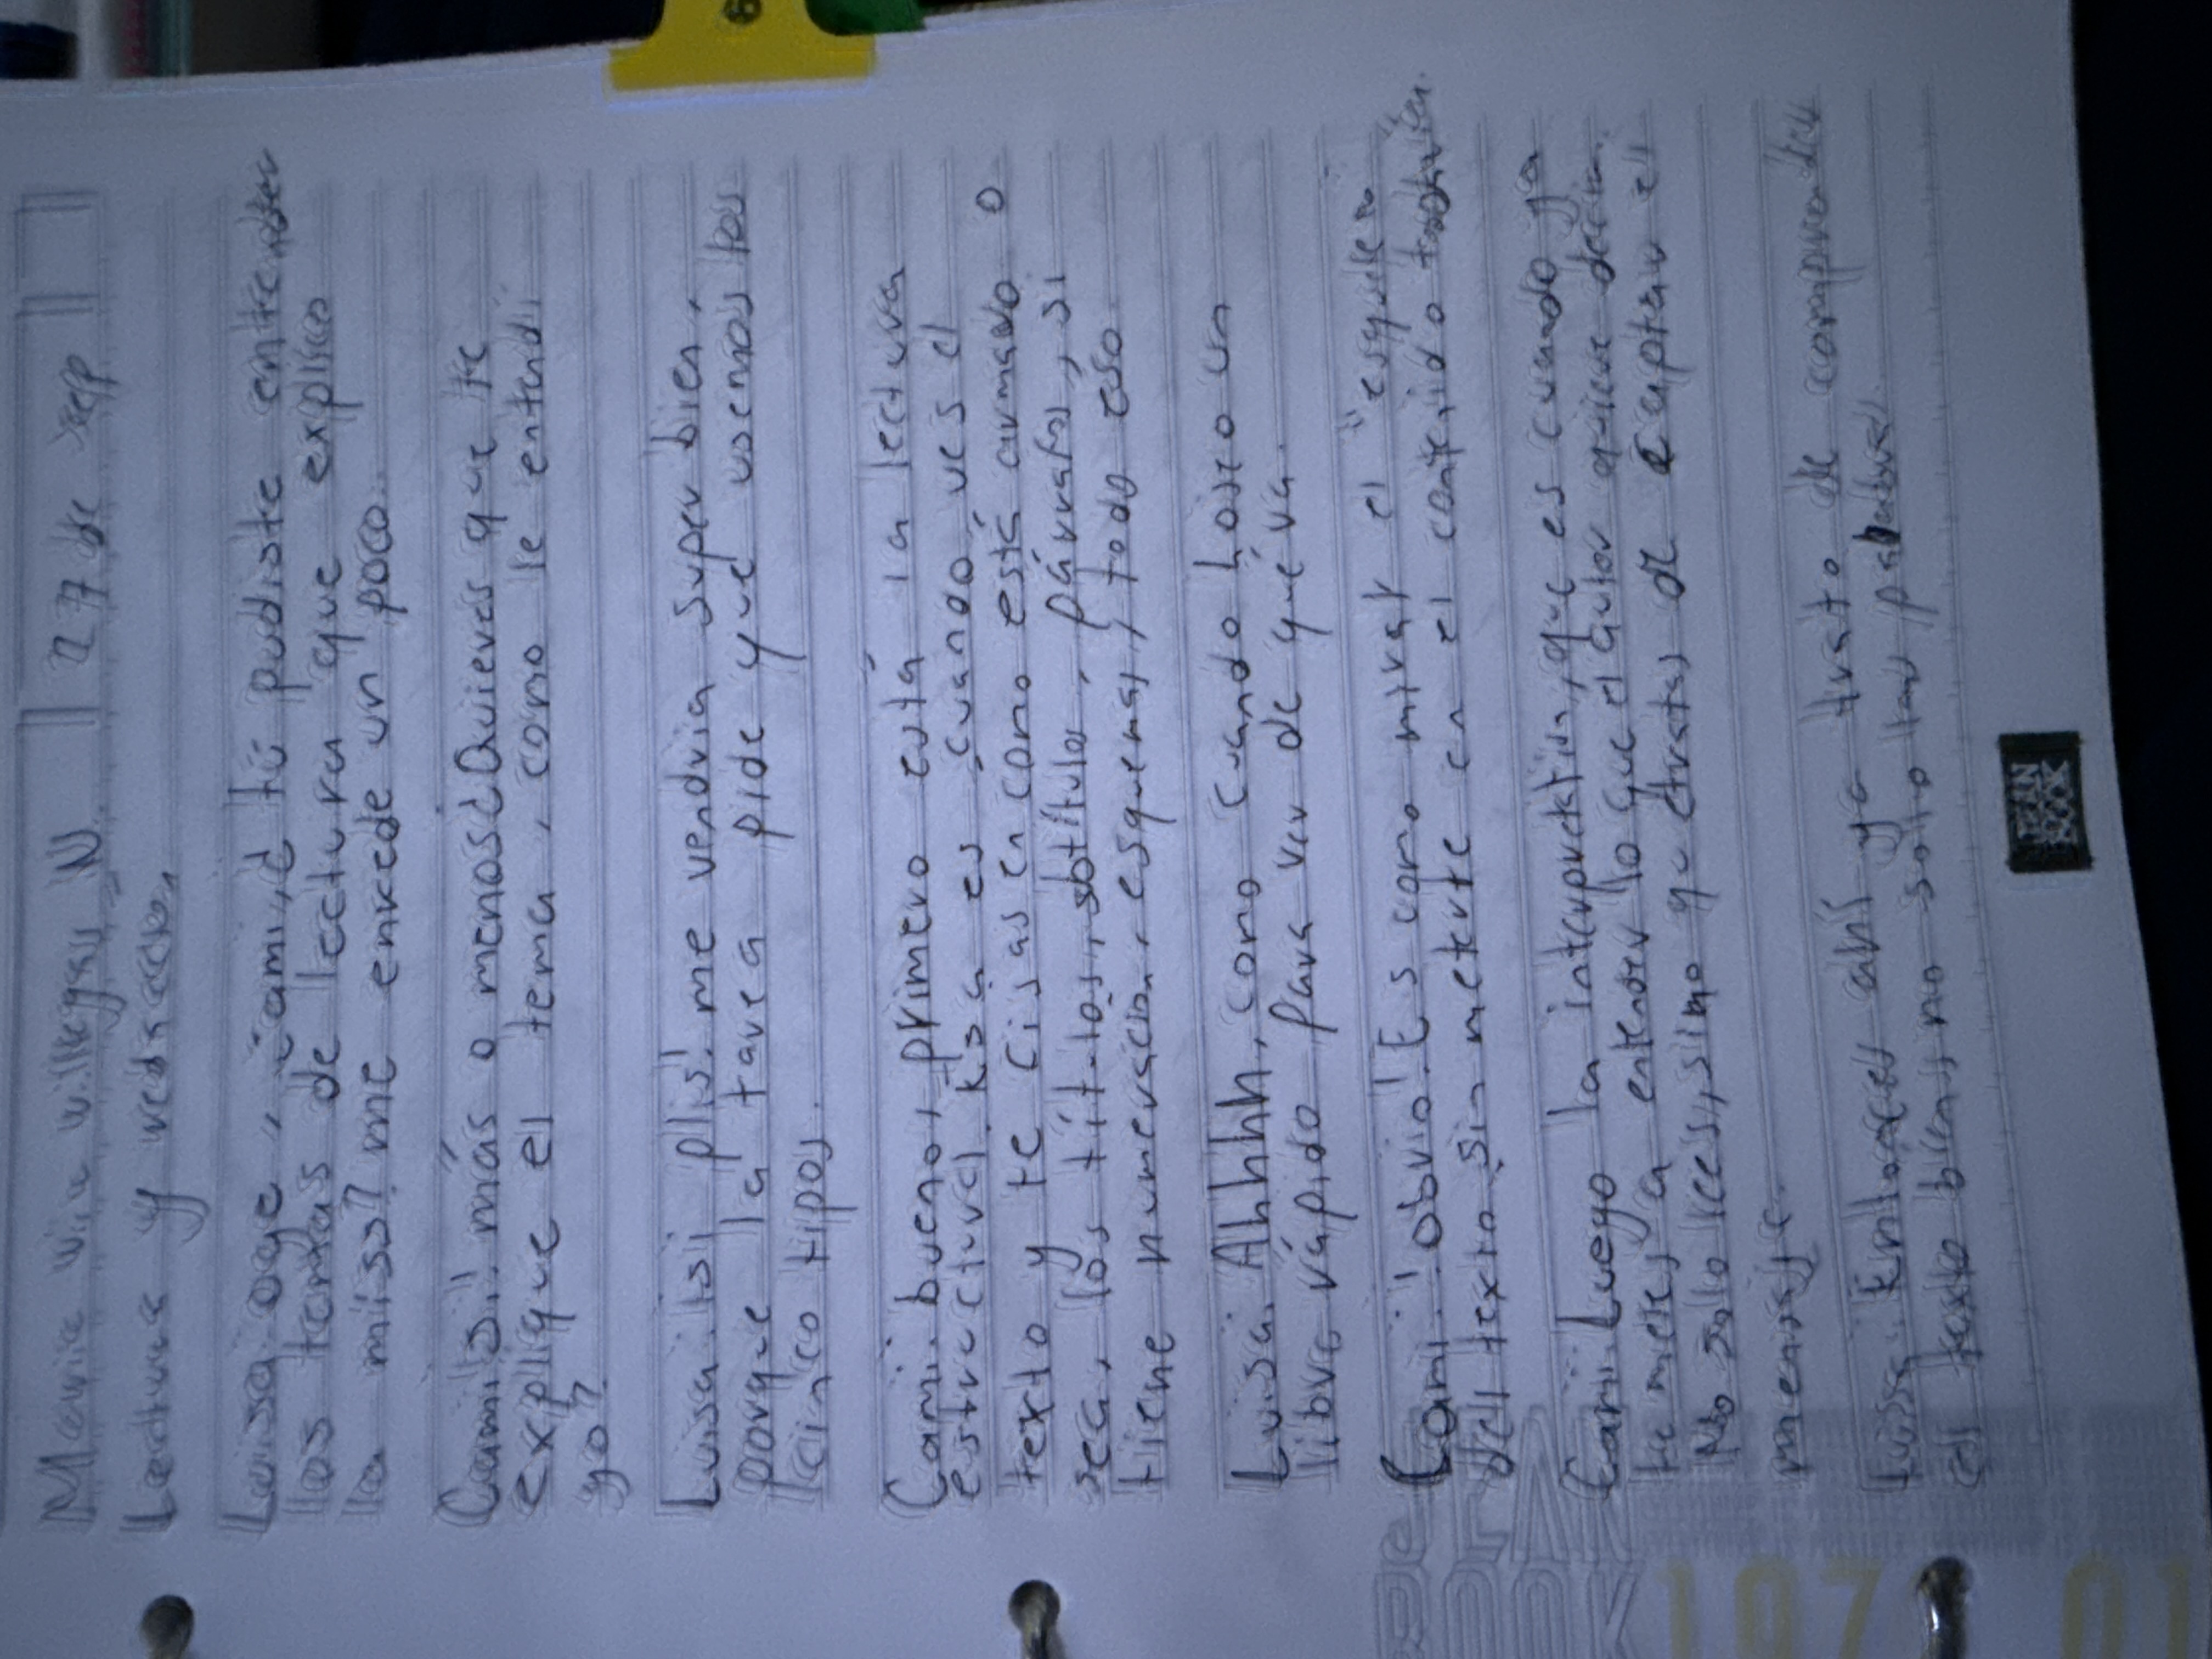 27 de sep
Lectura y redacción
Luisa: oye, ¿cami, tú pudiste entender
los temas de lectura que explico
la miss? me enrede un poco.
Cami: Sí! más o menos ¿Quieres que te
explique el tema, como le entendi
yo?
Luisa: ¡si plis! me vendria super bien,
porque la tarea pide que usemos los
cinco tipos.
Cami: bueno, primero está la lectura
estructural. Esa es cuando ves el
texto y te fijas en como está armado o
sea, los titulos, sbtítulos, párrafos, si
tiene numeración, esquemas, todo eso.
Luisa: Ahhhh, como cuando hojeo un
libro rápido para ver de qué va.
Cami: ¡obvio! Es como mirar el "esqueleto"
del texto sin meterte en el contenido todavía.
Cami: Luego la interpretativa, que es cuando ya
te metes a entender lo que el autor quiere decir.
No solo lees, sino que tratas de captar el
mensaje.
Luisa: Entonces ahí ya trato de comprender
el texto bien, no solo las palabras.
PLAN
BOOK